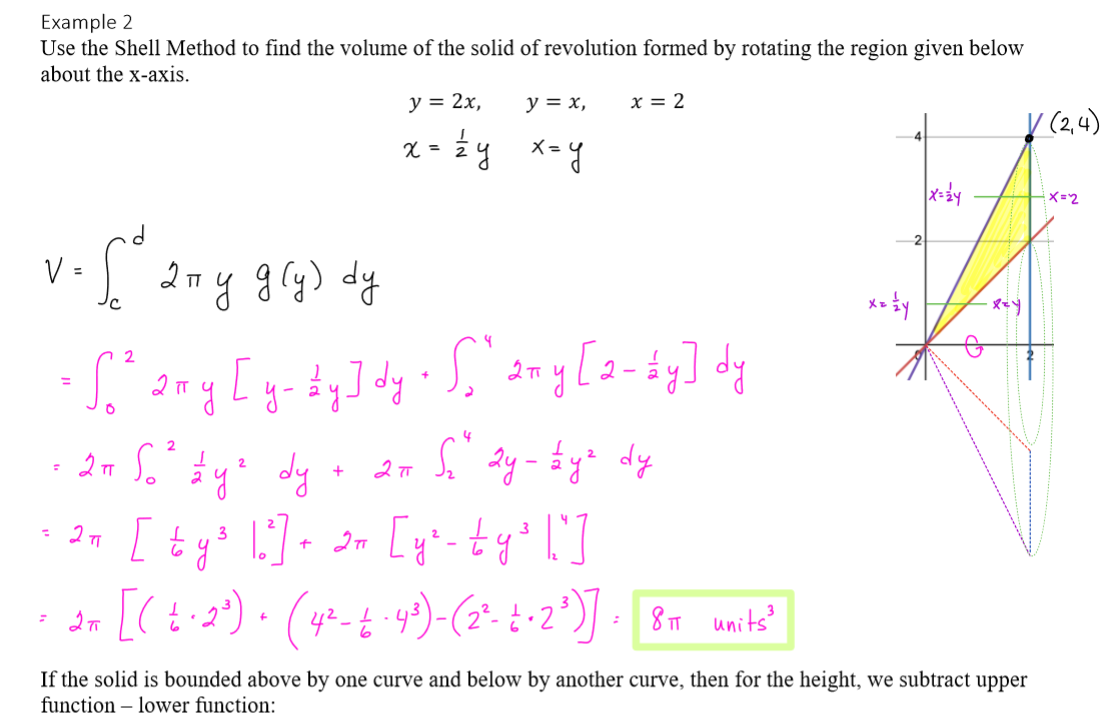 Example 2
Use the Shell Method to find the volume of the solid of revolution formed by rotating the region given below
about the x-axis.
y = 2x, y = x, x = 2
x = ½ y x = y
(2,4)
4
x=½y x=2
2
V = ∫_c^d 2π y g(y) dy
x=½y x=y
0 2
= ∫_0^2 2π y [y - ½y] dy + ∫_2^4 2π y [2 - ½y] dy
= 2π ∫_0^2 ½y² dy + 2π ∫_2^4 2y - ½y² dy
= 2π [⅙y³ |_0^2] + 2π [y² - ⅙y³ |_2^4]
= 2π [(⅙·2³) + (4² - ⅙·4³) - (2² - ⅙·2³)] = 8π units³
If the solid is bounded above by one curve and below by another curve, then for the height, we subtract upper
function – lower function: